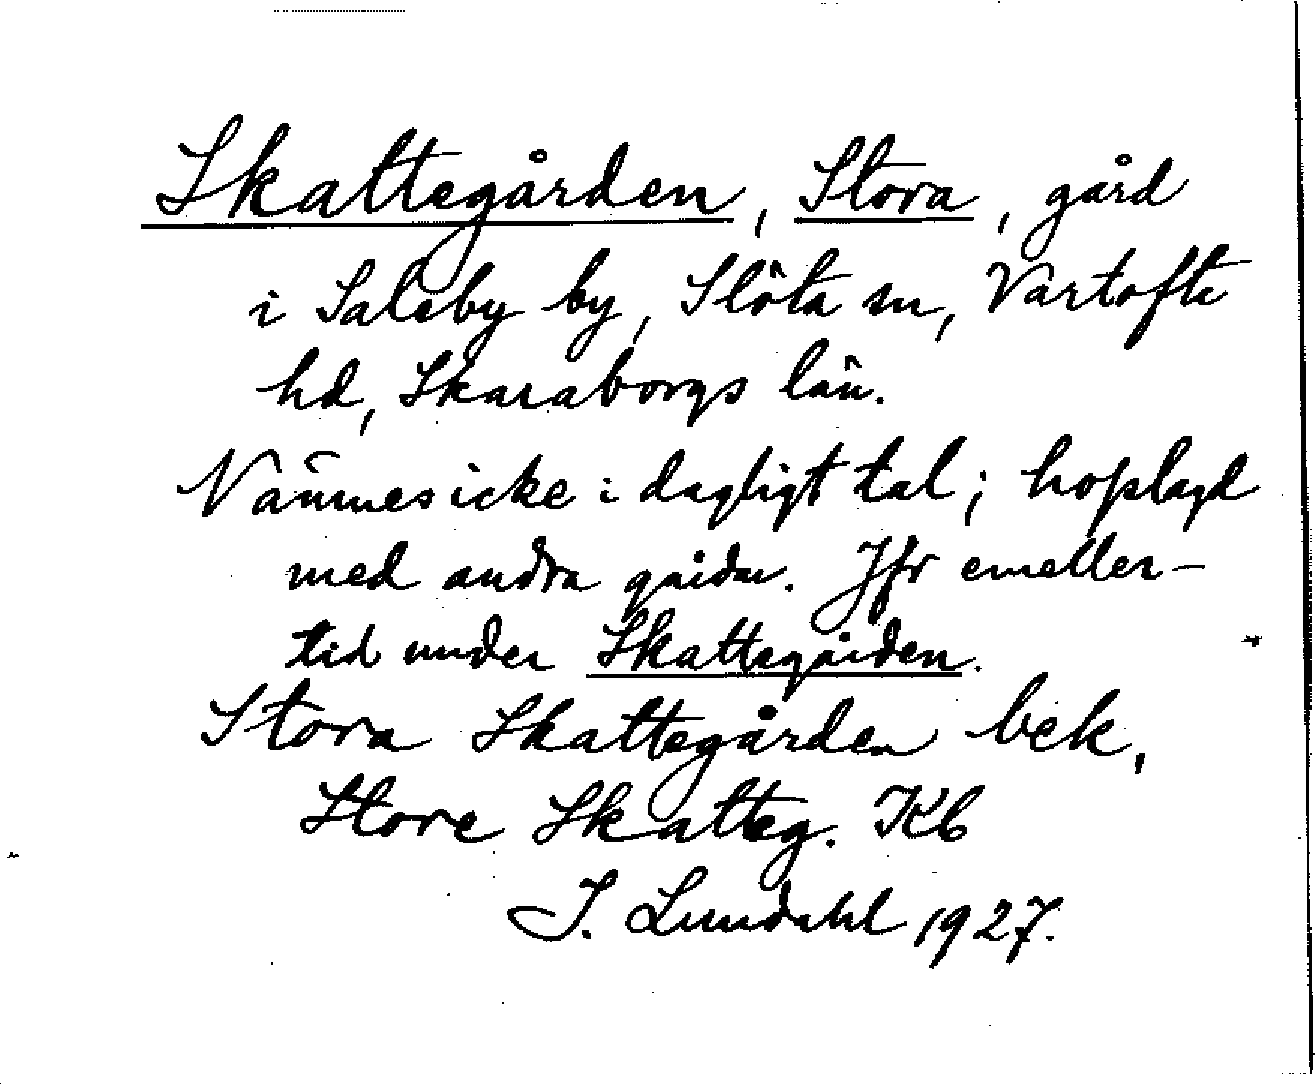 Skattegården, Stora, gård
i Saleby by, Slöta sn, Vartofte
hd, Skaraborgs län.
Nämnes icke i dagligt tal; hoplagd
med andra gårdar. Jfr emeller-
tid under Skattegården.
Stora Skattegården bek,
Store Skatteg. Kb
I. Lundahl 1927.